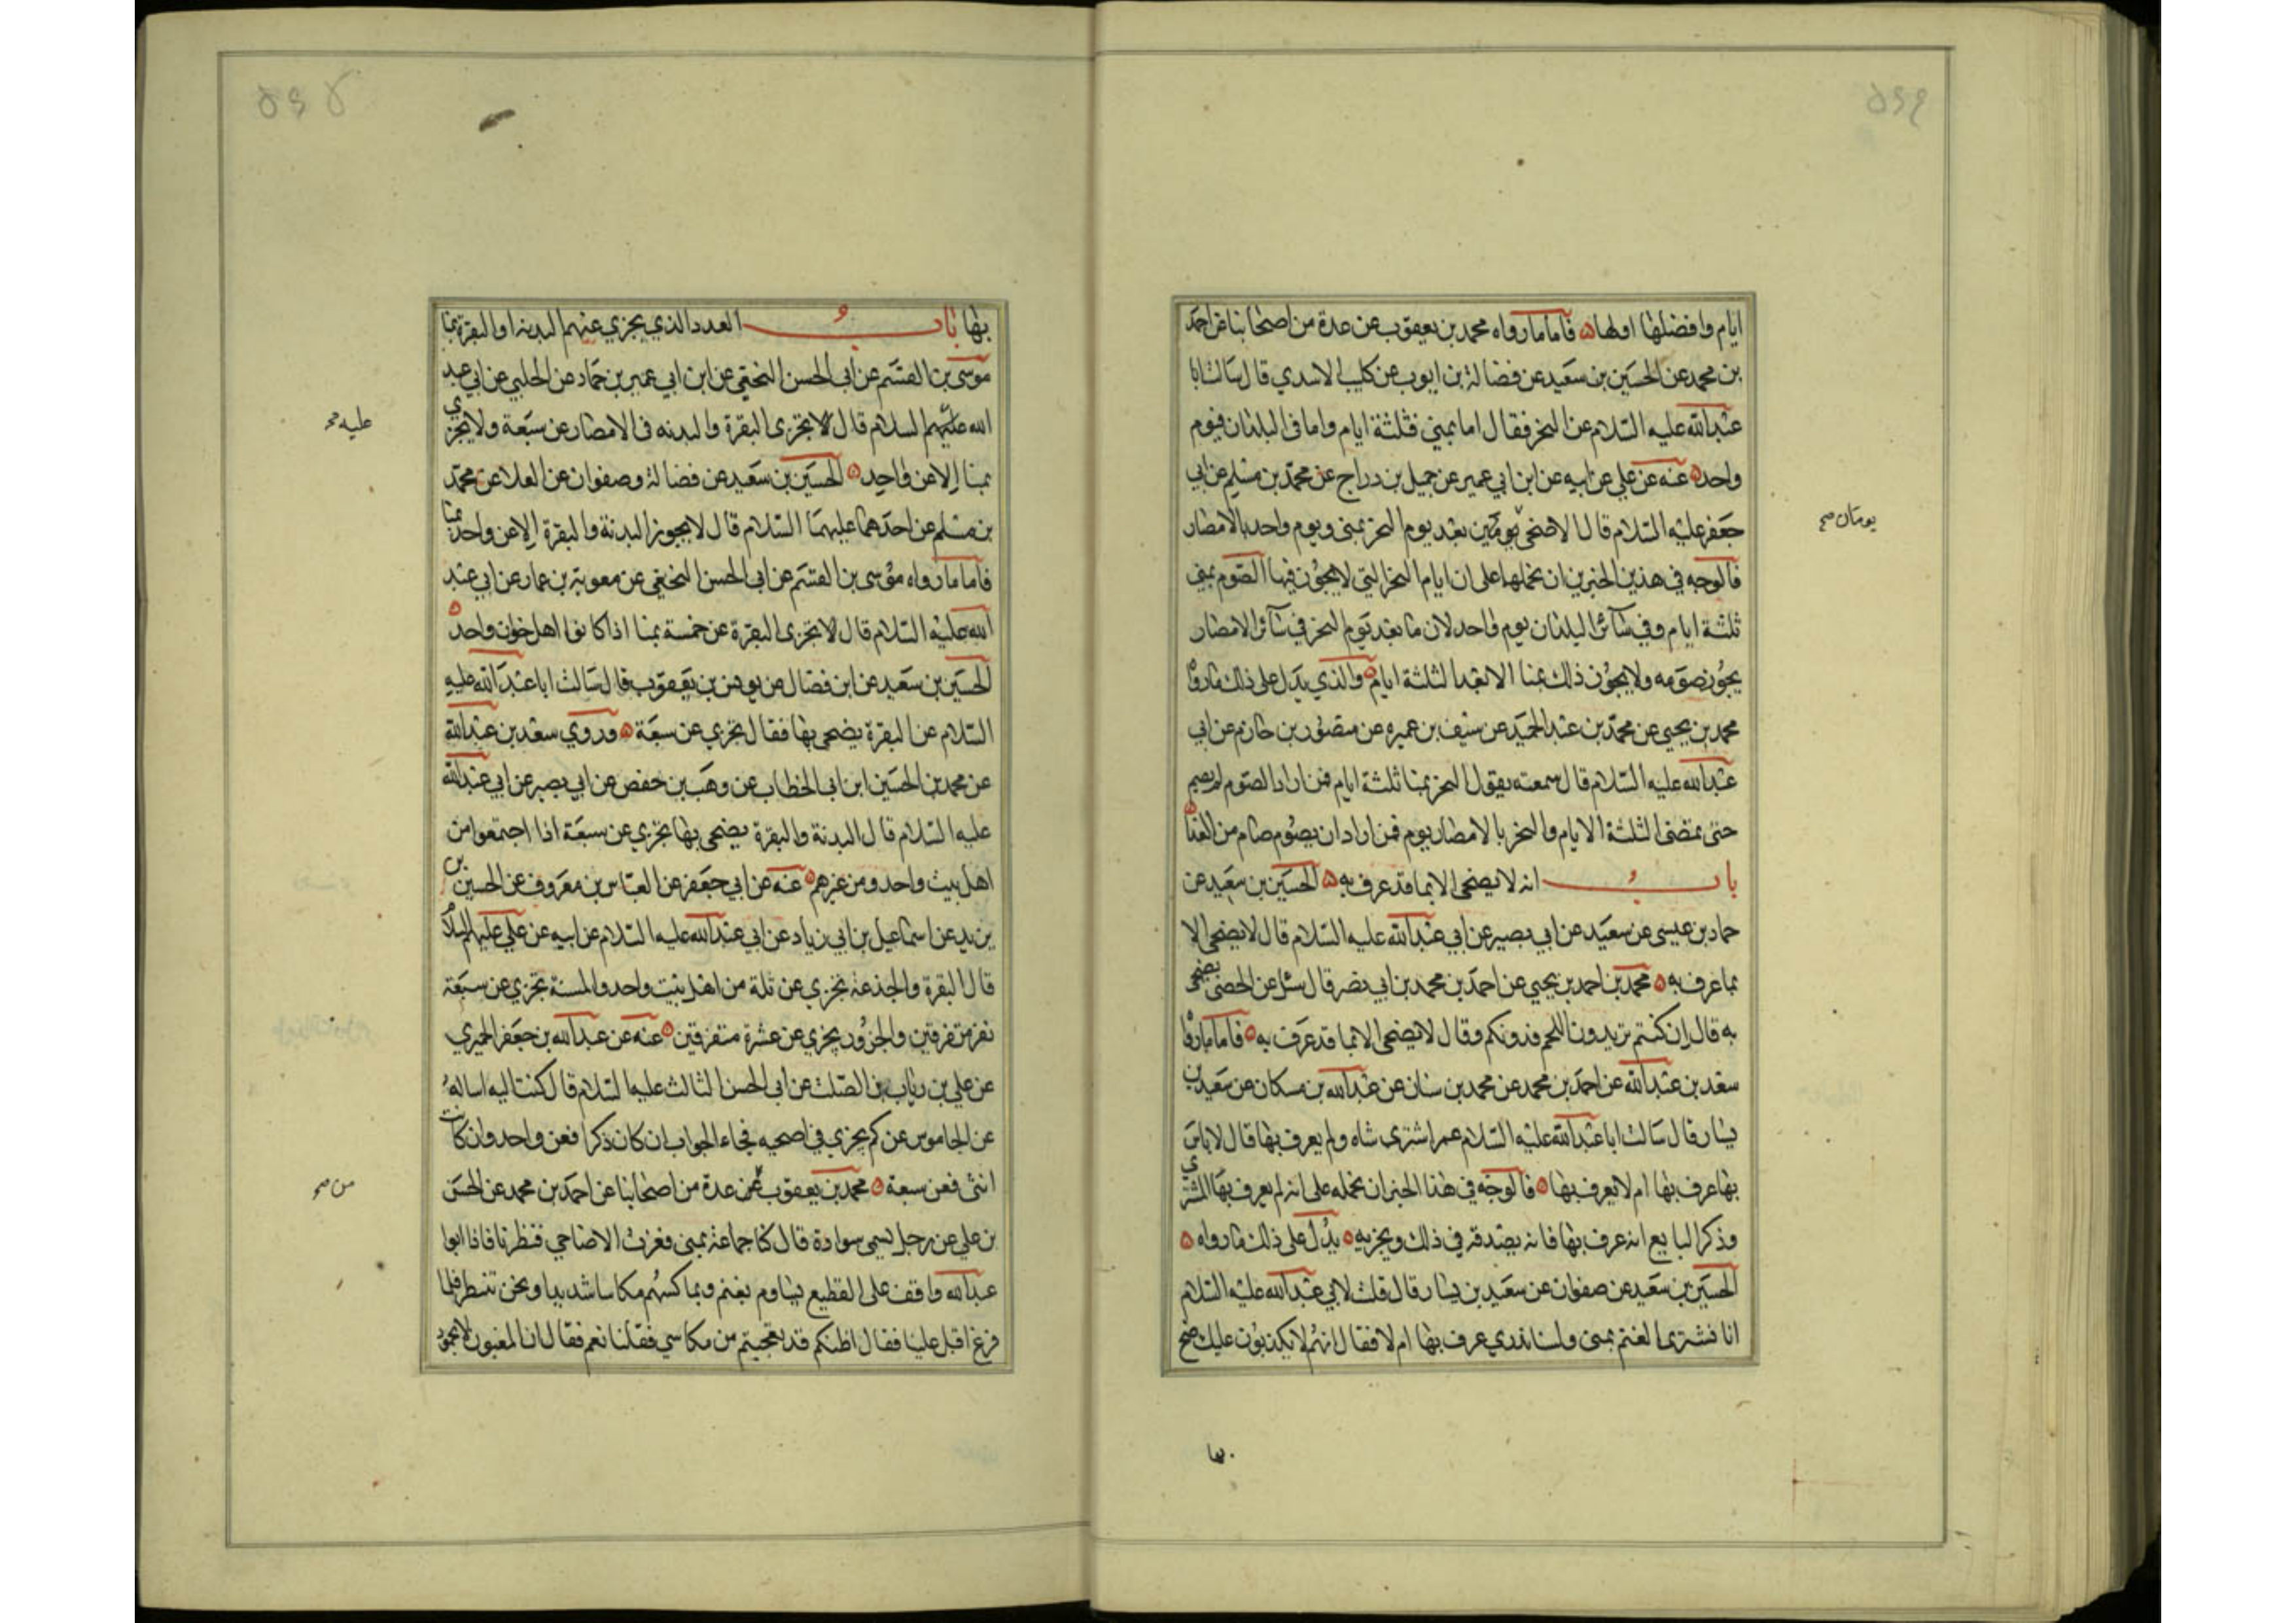 ايام وافضلها اولها فاما ما رواه محمد بن يعقوب عن عدة من اصحابنا عن احمد
بن محمد عن الحسين بن سعيد عن فضالة بن ايوب عن كليب الاسدي قال سالت ابا
عبد الله عليه السلام عن النحر فقال اما بمنى فثلثة ايام واما في البلدان فيوم
واحد عنه عن علي عن ابيه عن ابن ابي عمير عن جميل بن دراج عن محمد بن مسلم عن ابي
جعفر عليه السلام قال الاضحى يومين بعد يوم النحر بمنى ويوم واحد بالامصار
يومان صح
فالوجه في هذين الخبرين ان نحملها على ان ايام النحر التي لا يجوز فيها الصوم بمنى
ثلثة ايام وفي سائر البلدان يوم واحد لان ما بعد يوم النحر في سائر الامصار
يجوز صومه ولا يجوز ذلك بمنا الا بعد الثلثة ايام والذي يدل على ذلك ما رواه
محمد بن يحيى عن محمد بن عبد الحميد عن سيف بن عميره عن منصور بن حازم عن ابي
عبد الله عليه السلام قال سمعته يقول النحر بمنا ثلثة ايام فمن اراد الصوم لم يصم
حتى تمضى الثلثة الايام والنحر بالامصار يوم فمن اراد ان يصوم صام من الغد
باب انه لا يضحى الا بما قد عرف به الحسين بن سعيد عن
حماد بن عيسى عن سعيد عن ابي بصير عن ابي عبد الله عليه السلام قال لا يضحى الا
بما عرف به محمد بن احمد بن يحيى عن احمد بن محمد بن ابي نصر قال سئل عن الخصى يضحى
به قال ان كنتم تريدون اللحم فدونكم وقال لا يضحى الا بما قد عرف به فاما ما رواه
سعد بن عبد الله عن احمد بن محمد عن محمد بن سنان عن عبد الله بن مسكان عن سعيد بن
يسار قال سالت ابا عبد الله عليه السلام عمن اشترى شاه ولم يعرف بها قال لا باس
بها عرف بها ام لا يعرف بها فالوجه في هذا الخبر ان نحمله على انه لم يعرف بها المشتري
وذكر البايع انه عرف بها فانه يصدقه في ذلك ويجزيه يدل على ذلك ما رواه
الحسين بن سعيد عن صفوان عن سعيد بن يسار قال قلت لابي عبد الله عليه السلام
انا نشترى الغنم بمنى ولسنا ندري عرف بها ام لا فقال انهم لا يكذبون عليك ضح
بها
بها باب العدد الذي يجزي عنهم البدنه او البقرة بمنا
موسى بن القسم عن ابي الحسن النخعي عن ابن ابي عمير بن حماد عن الحلبي عن ابي عبد
الله عليهم السلام قال لا تجزى البقرة والبدنه في الامصار عن سبعة ولا يجزي
عليه صح
بمنا الا عن واحد الحسين بن سعيد عن فضالة وصفوان عن العلا عن محمد
بن مسلم عن احدهما عليهما السلام قال لا يجوز البدنة والبقرة الا عن واحد بمنا
فاما ما رواه موسى بن القسم عن ابي الحسن النخعي عن معوية بن عمار عن ابي عبد
الله عليه السلام قال لا تجزى البقرة عن خمسة بمنا اذا كانوا اهل خوان واحد
الحسين بن سعيد عن ابن فضال عن يونس بن يعقوب قال سالت ابا عبد الله عليه
السلام عن البقرة يضحى بها فقال تجزي عن سبعة وروي سعد بن عبد الله
عن محمد بن الحسين ابن ابي الخطاب عن وهب بن حفص عن ابي بصير عن ابي عبد الله
عليه السلام قال البدنة والبقرة يضحى بها تجزي عن سبعة اذا اجتمعوا من
اهل بيت واحد ومن غيرهم عنه عن ابي جعفر عن العباس بن معروف عن الحسين بن
يزيد عن اسماعيل بن ابي زياد عن ابي عبد الله عليه السلام عن ابيه عن علي عليهم السلام
قال البقرة والجذعه تجزي عن ثلة من اهل بيت واحد والمسنة تجزي عن سبعة
نفر متفرقين والجزور يجزي عن عشرة متفرقين عنه عن عبد الله بن جعفر الحميري
عن علي بن رياب بن الصلت عن ابي الحسن الثالث عليه السلام قال كنت اليه اساله
عن الجاموس عن كم يجزي في اضحيه فجاء الجواب ان كان ذكرا فعن واحد وان كانت
انثى فعن سبعة محمد بن يعقوب عن عدة من اصحابنا عن احمد بن محمد عن الحسن
من صح
بن علي عن رجل يسمى سوادة قال كنا جماعة بمنى فعزت الاضاحي فنظرنا فاذا ابوا
عبد الله واقف على القطيع يساوم بغنم ويماكسهم مكاسا شديدا ونحن ننتظر فلما
فرغ اقبل علينا فقال اظنكم قد تعجبتم من مكاسي فقلنا نعم فقال ان المغبون لا محمود